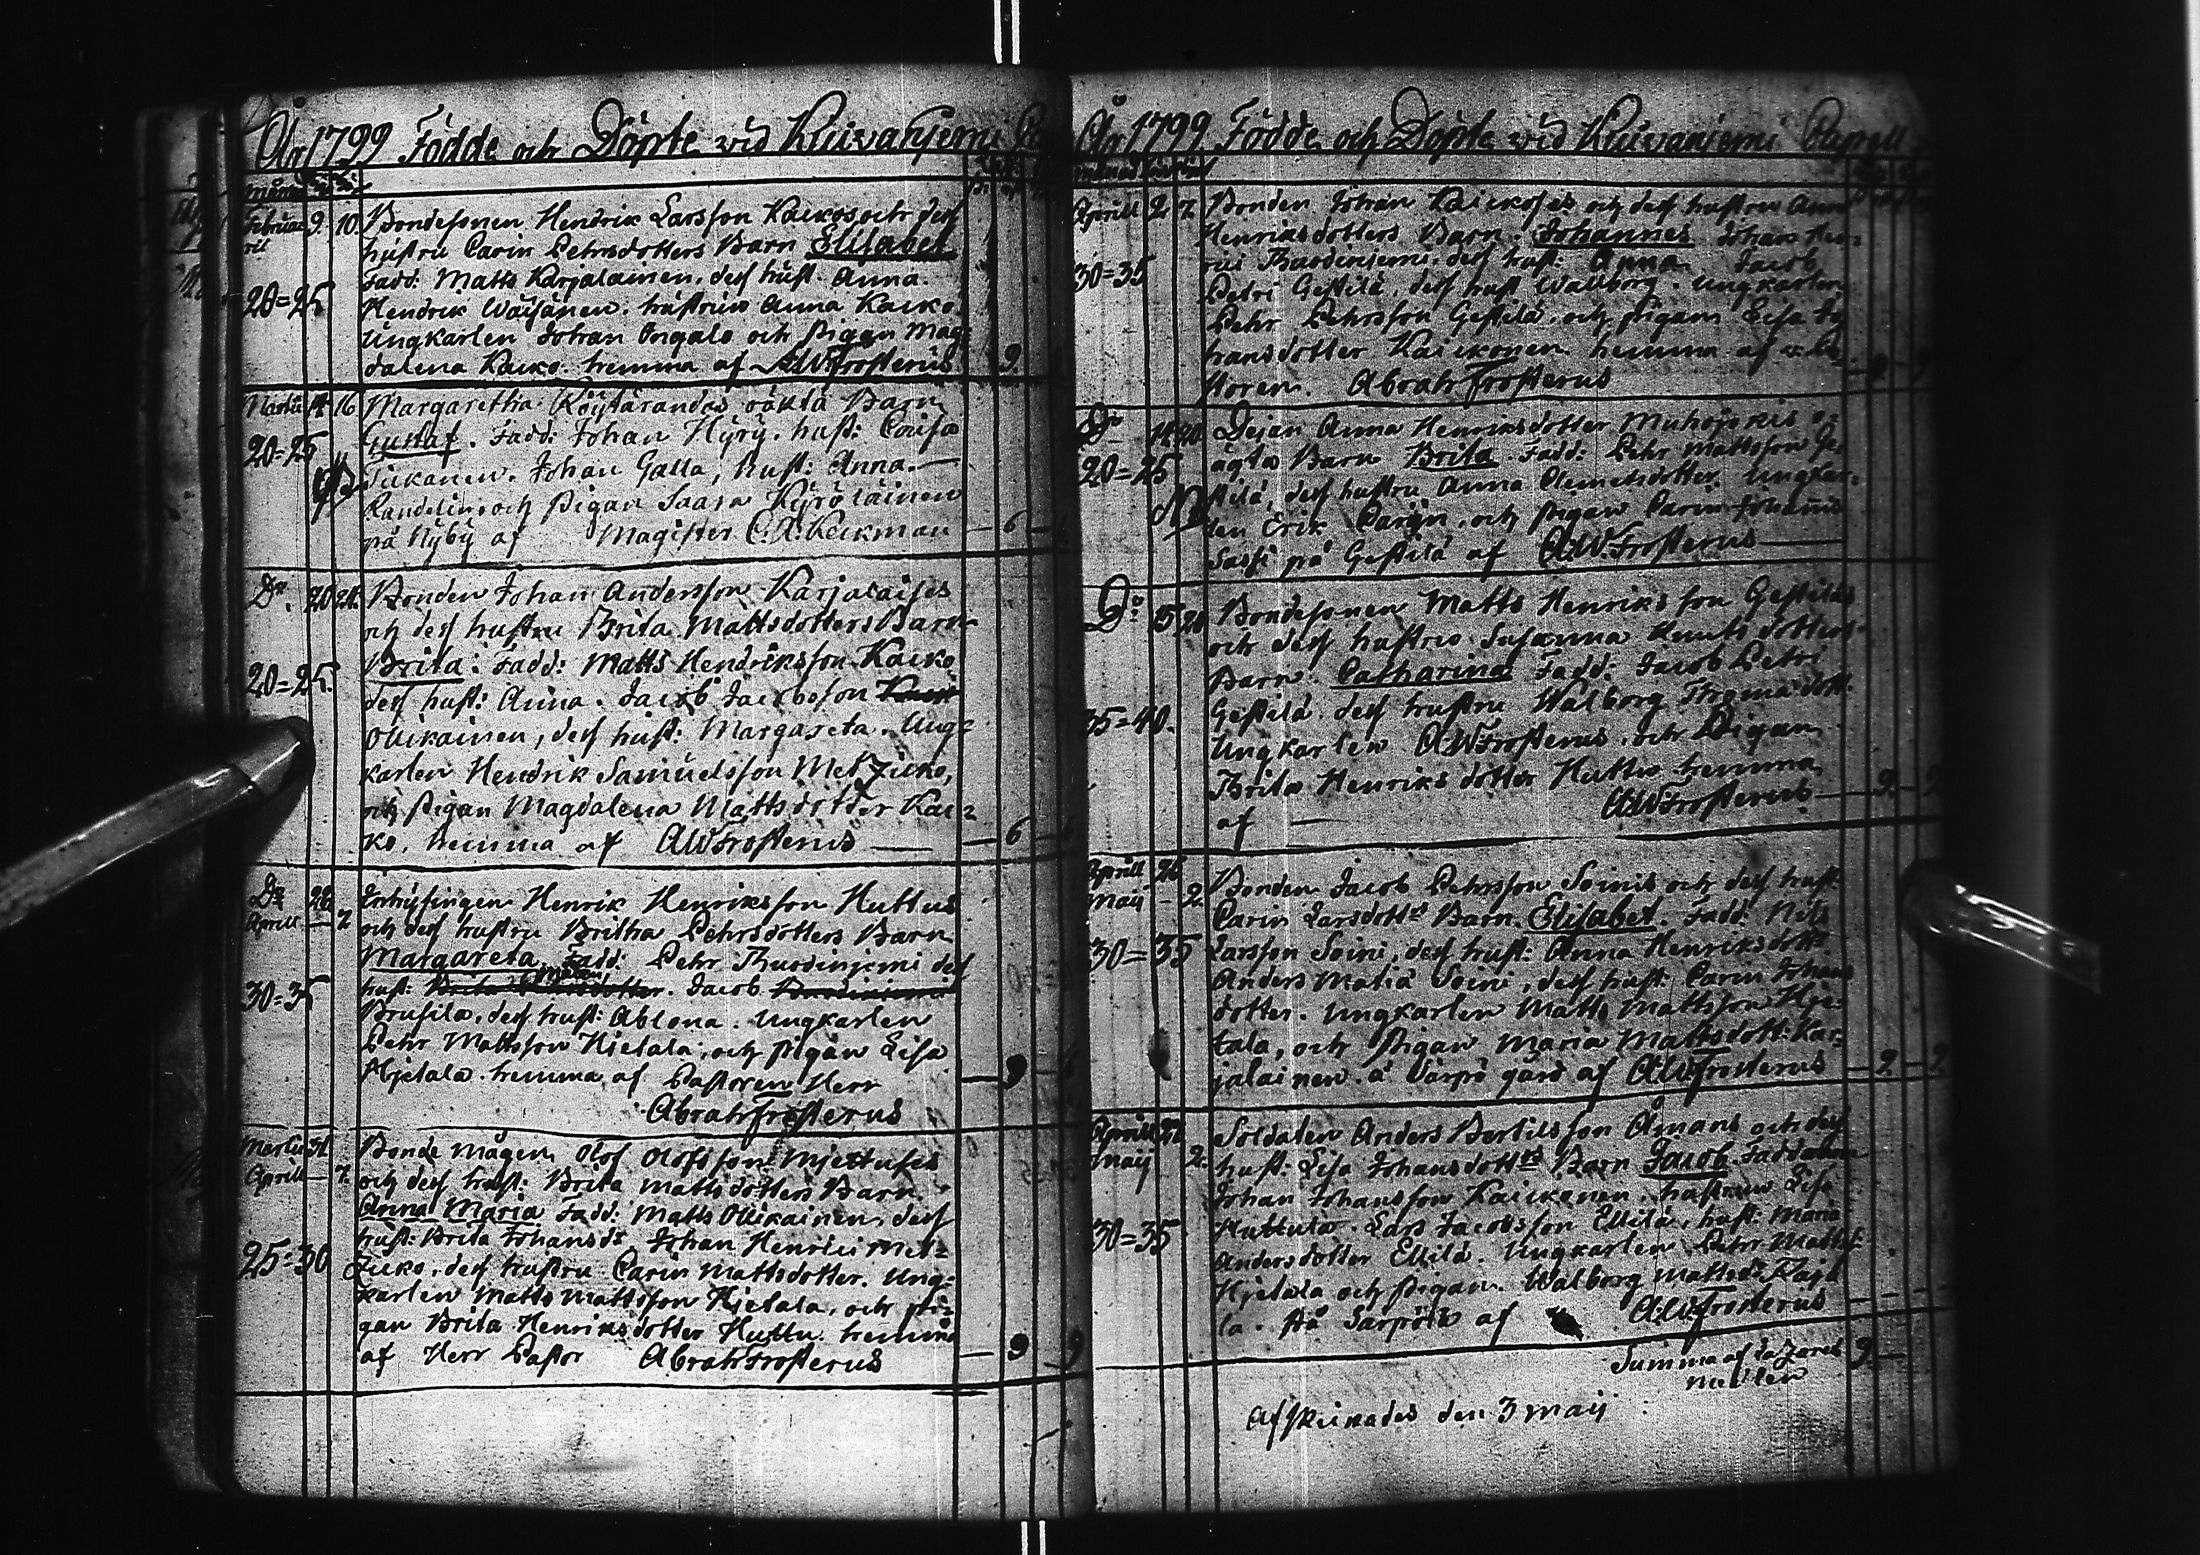 År 1799 Födde och Döpte vid Kiivanjemi
Februa= 9. 10. Bondesonen Hendrik Larsson Kaikos och dess
rii hustru Carin Pehrsdotters Barn Elisabet
Fadd: Matts Karjalainen, dess hust. Anna.
20=25 Hendrik Wäisänen. hustrun Anna Kaiko.
Ungkarlen Johan Ongalo och pigan Mag=
dalena Kaiko. hemma af AWFrosterus 9
Martii 14 16 Margaretha Köytärandas oäkta Barn
20=25 Gustaf. Fadd: Johan Hÿrÿ. hust: Lovisa
Tiikanen. Johan Galla, hust: Anna.
Randelin, och Pigan Saara Kÿröläinen
på Nÿbÿ af Magister C. A. Keckman 6
Do. 20 24. Bonden Johan Andersson Karjalaises
och dess hustru Brita Mattsdotters Barn
Brita. Fadd: Matts Hendriksson Kaiko
20=25. dess hust: Anna. Jacob Jacobsson
Ollikainen, dess hust: Margareta. Ung=
karlen Hendrik Samuelsson Metzuko,
och pigan Magdalena Mattsdotter Kai=
ko. hemma af AWFrosterus 6
Do 28 Inhÿsingen Henrik Henriksson Huttus
Aprill 7 och dess hustru Britha Pehrsdotters Barn
Margareta Fadd: Pehr Thuodinjemi dess
30=35 hust: Jacob
Brusila, dess hust: Ablona. Ungkarlen
Pehr Mattsson Hietala, och pigan Lisa
Hjetala. hemma af Pastoren Herr 9
Abrah Frosterus
Martii 31 Bonde mågen Olof Olofsson Mjettuses
Aprill 7. och dess hust: Brita Mattsdotters Barn
Anna Maria Fadd: Matts Ollikainen, dess
hust: Brita Johansdr Johan Henrici Met=
25=30 zuko, dess hustru Carin Mattsdotter. Ung=
karlen Matts Mattsson Hjetala, och pi=
gan Brita Henriksdotter Huttu. hemma
af Herr Pastor Abrah Frosterus 9 9
År 1799 Födde och Döpte vid Kiivanjemi Capell
Aprill 2 7. Bonden Johan Kaickoses och dess hustru Anna
Henriksdotters Barn. Johannes Johan Hen=
rici Thuodinjemi. dess hust: Anna Jacob
30=35 Petri Gestilä, dess hust Wallborg. Ungkarlen
Pehr Pehrsson Gestilä, och pigan Lisa Jo
hansdotter Kaickonen. hemma af
storen. Abrah Frosterus
Do 14 20 Dejan Anna Henriksdotter Muhojokis o=
20=25 ägta Barn Brita. Fadd: Pehr Mattsson Ge=
stilä, dess hustru Anna Clemetsdotter. Ungkar=
len Erik Parijn, och pigan Carin Johans
Sassi på Gestilä af A.W.Frosterus
Do 15 20 Bondesonen Matts Henriksson Gestiläs
och dess hustru Susanna Knutsdotters
Barn. Catharina Fadd: Jacob Petri
Gestilä. dess hustru Walborg Thomædott.
35=40. Ungkarlen AWFrosterus. och Pigan
Brita Henriksdotter Huttu hemma
af AWFrosterus 9. 9
Aprill 26 Bonden Jacob Pehrsson Soinis och dess hust:
Maij 2. Carin Larsdottrs Barn. Elisabet. Fadd: Nils
30=35 Larsson Soini, dess hust: Anna Henriksdottr
Anders Matiä Soini, dess hust: Carin Johans
dotter. Ungkarlen Matts Mattsson Hje=
tala, och Pigan Maria Mattsdott: Kar=
jalainen. å Varpo gård af A.W.Frosterus 9 9
Aprill 27 Soldaten Anders Bertilsson Åmans och dess
Maij 2. hust: Lisa Johansdottrs Barn Jacob Faddrarne
Johan Johansson Kaickonen. hustrun Lisa
30=35 Huttula. Lars Jacobsson Ellilä, hust: Maria
Andersdotter Ellilä. Ungkarlen Pehr Matts:
Hjetala och Pigan. Walborg Mattsdr Raja
la. På Sarpola af A.W.Frosterus
Summa af 9
Afskickades den 3 maij